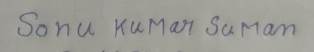 Sonu Kumar Suman